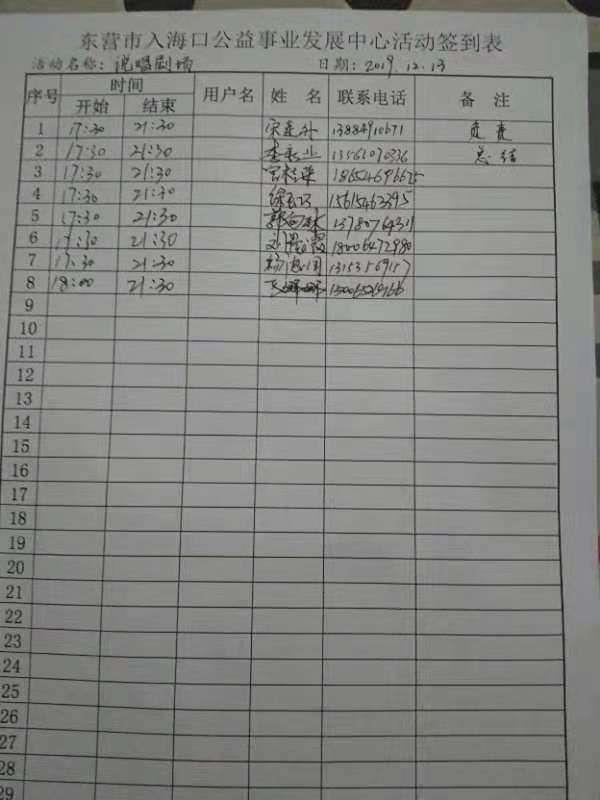 东营市入海口公益事业发展中心活动签到表
活动名称：说唱剧场 日期：2019.12.13
序号 时间 用户名 姓名 联系电话 备注
开始 结束
1 17:30 21:30 13884910671 负责
2 17:30 21:30 李新业 13561070336 总结
3 17:30 21:30 18654696625
4 17:30 21:30 15615463395
5 17:30 21:30 郭向林
6 17:30 21:30 刘霞 18006472980
7 17:30 21:30 杨德国 13153569157
8 18:00 21:30
9
10
11
12
13
14
15
16
17
18
19
20
21
22
23
24
25
26
27
28
29